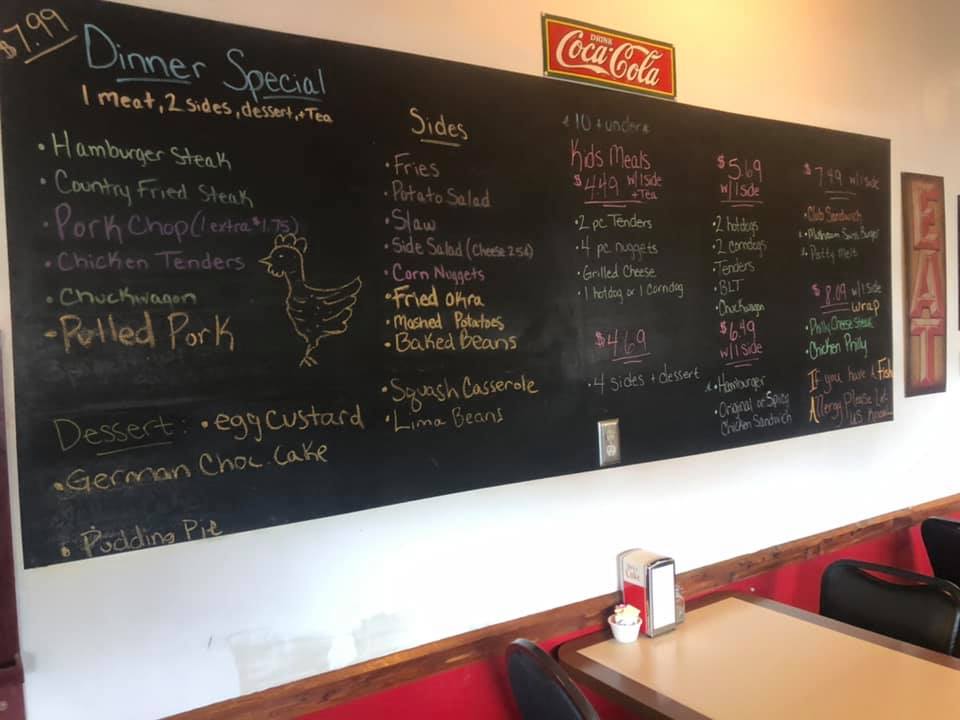 $7.99
Dinner Special
1 meat, 2 sides, dessert, + Tea
• Hamburger Steak
• Country Fried Steak
• Pork Chop (1 extra $1.75)
• Chicken Tenders
• Chuckwagon
- Pulled Pork
Dessert: • egg custard
• German Choc. Cake
• Pudding Pie
Sides
• Fries
• Potato Salad
• Slaw
• Side Salad (Cheese 25¢)
• Corn Nuggets
• Fried Okra
• Mashed Potatoes
• Baked Beans
• Squash Casserole
• Lima Beans
DRINK
Coca-Cola
* 10 + under *
Kids Meals
$4.49 w/1 side
+ Tea
• 2 pc Tenders
• 4 pc. nuggets
• Grilled Cheese
• 1 hotdog or 1 Corndog
$4.69
• 4 sides + dessert
$5.69
w/1 side
• 2 hotdogs
• 2 corndogs
• Tenders
• BLT
• Chuckwagon
$6.49
w/1 side
• Hamburger
• Original or Spicy
Chicken Sandwich
$7.49 w/1 side
• Club Sandwich
• Mushroom Swiss Burger
• Patty Melt
$8.09 w/1 side
wrap
• Philly Cheese Steak
• Chicken Philly
If you have a Fish
Allergy Please Let
us Know
EAT
Coke